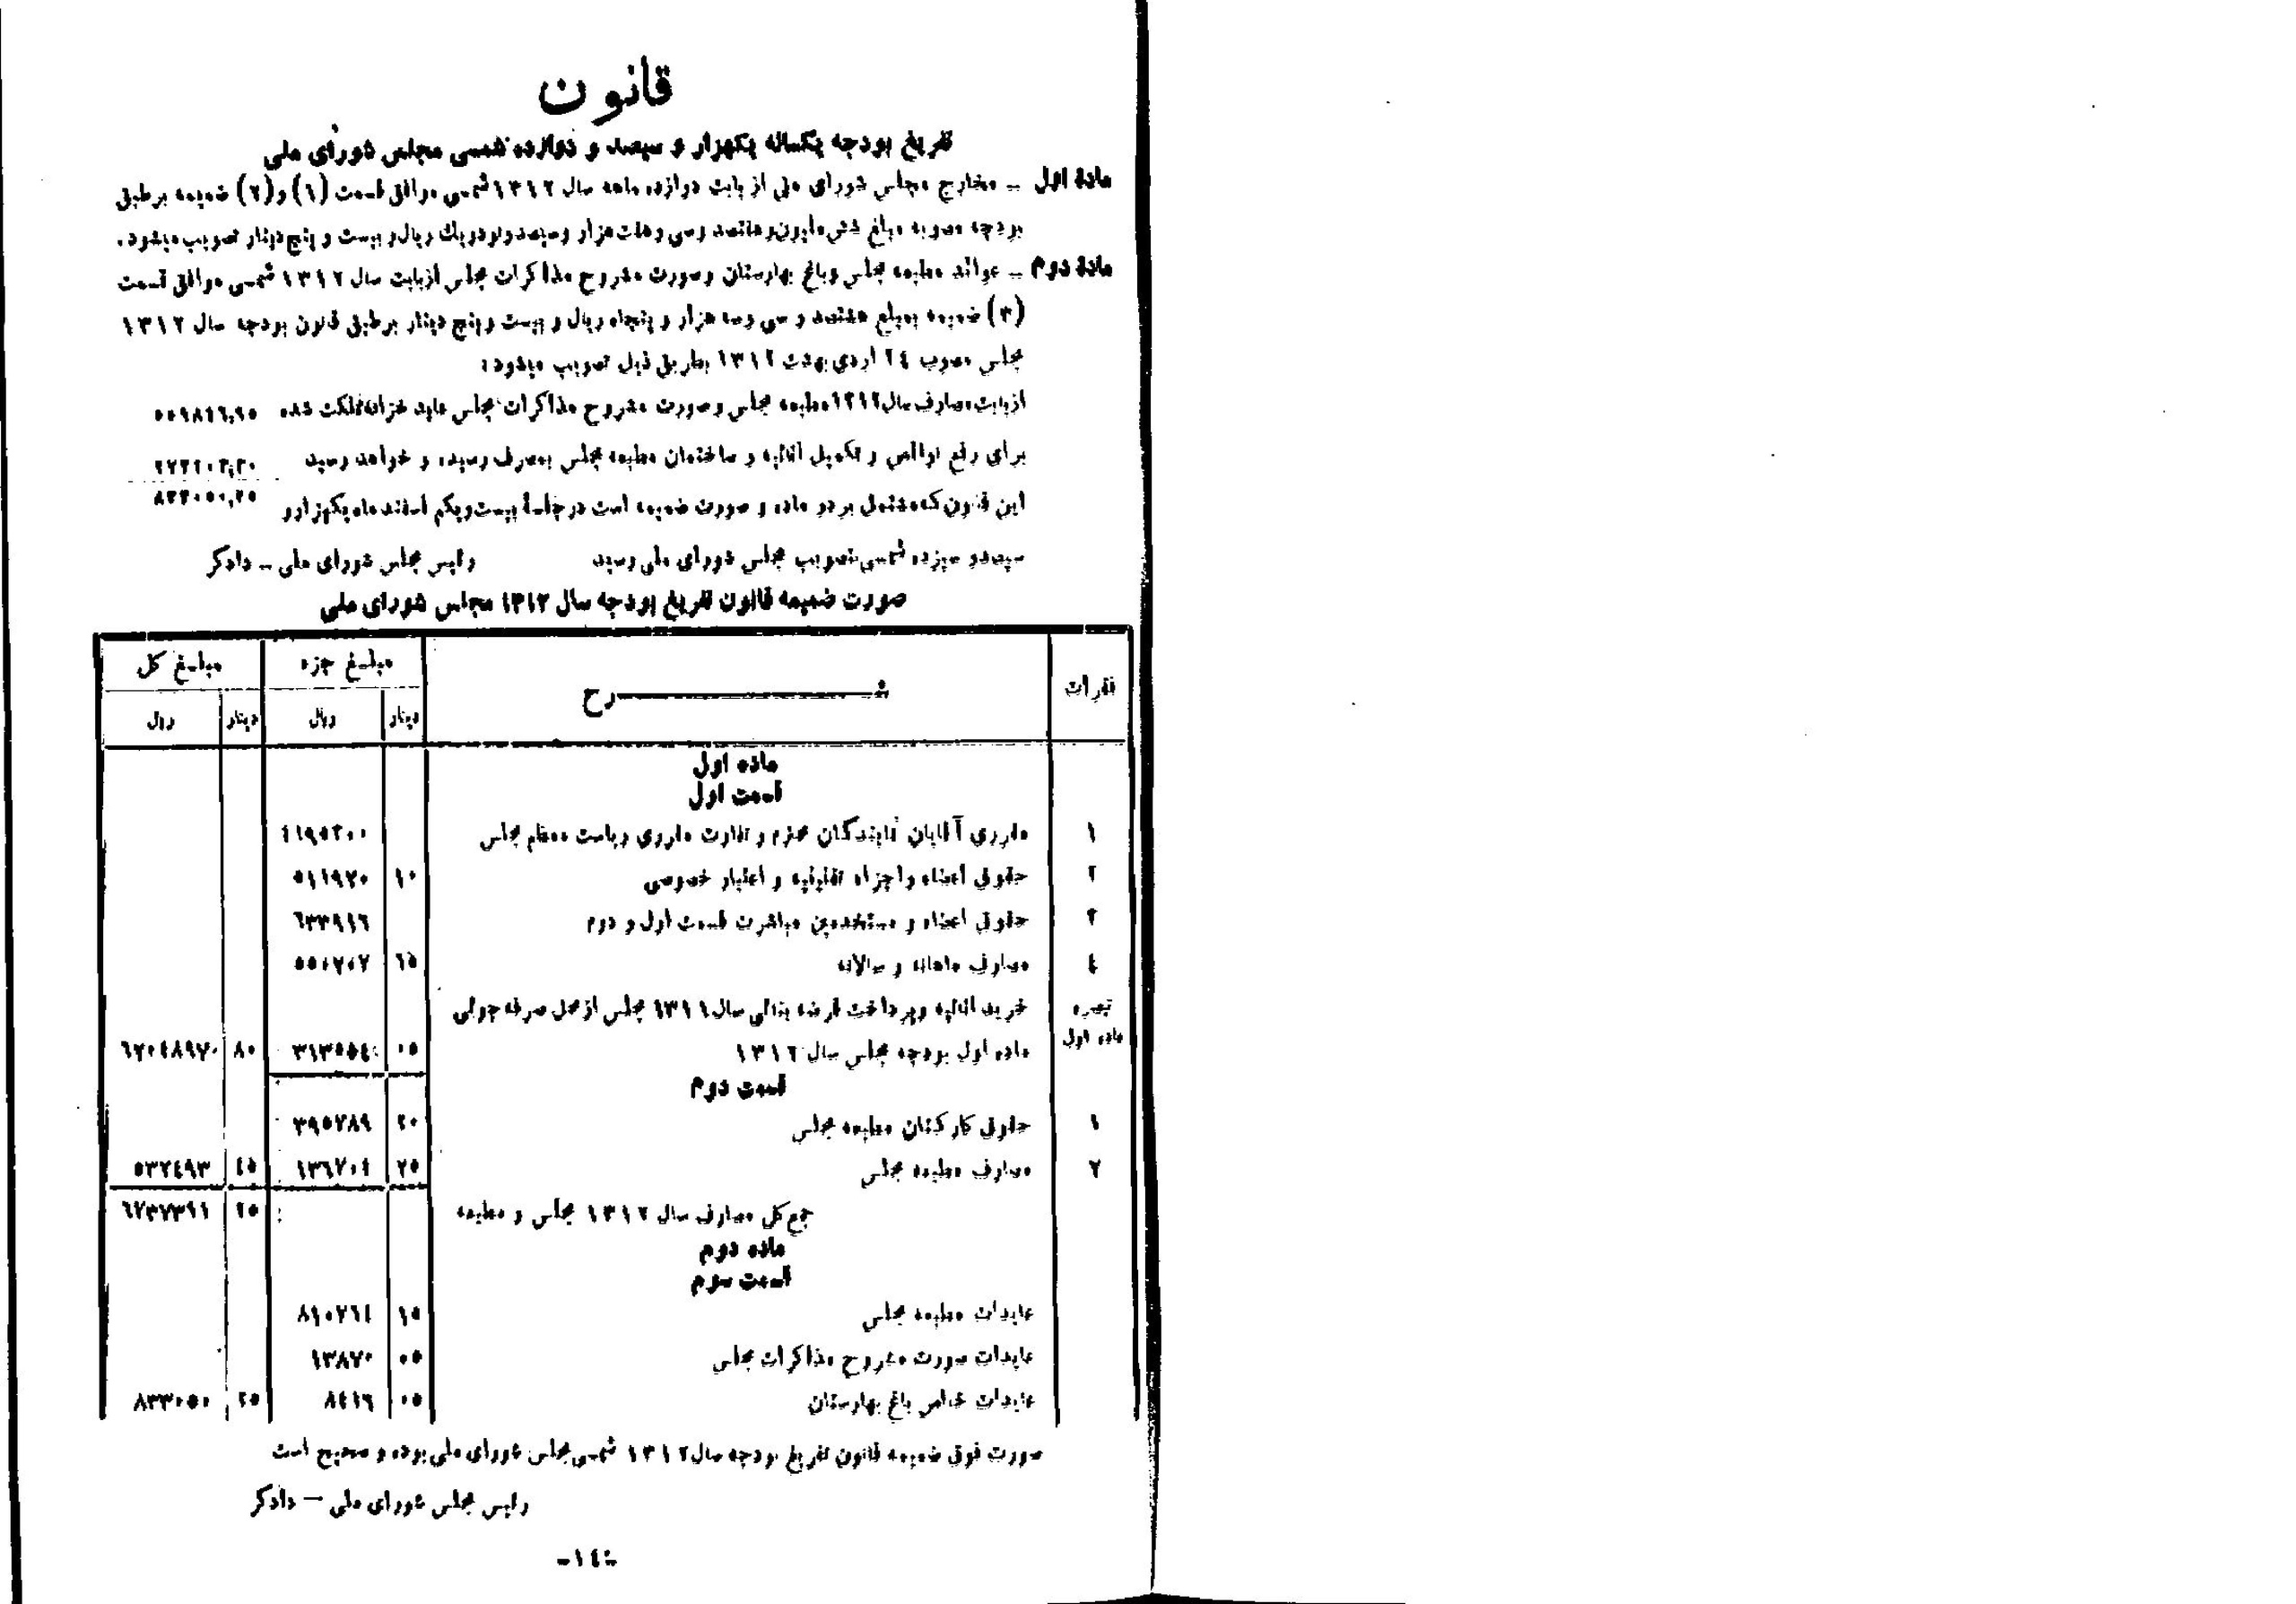 قانون
تفریغ بودجه یکساله یکهزار و سیصد و دوازده شمسی مجلس شورای ملی
مادهٔ اول ــ مخارج مجلس شورای ملی از بابت دوازده ماهه سال ۱۳۱۲ شمسی موافق قسمت (۱) و (۲) ضمیمه برطبق
بودجه مصوبه مبلغ شش ملیون و هفتصد و سی و هفت هزار و سیصد و نود و یك ریال و بیست و پنج دینار تصویب میشود.
مادهٔ دوم ــ عوائد مطبعه مجلس و باغ بهارستان و صورت مشروح مذاکرات مجلس از بابت سال ۱۳۱۲ شمسی موافق قسمت
(۳) ضمیمه بمبلغ هشتصد و سی و سه هزار و پنجاه ریال و بیست و پنج دینار برطبق قانون بودجه سال ۱۳۱۲
مجلس مصوب ۲٤ اردی بهشت ۱۳۱۲ بطریق ذیل تصویب میشود:
از بابت مصارف سال ۱۳۱۲ مطبعه مجلس و صورت مشروح مذاکرات مجلس عاید خزانه مملکت شده
برای رفع نواقص و تکمیل اثاثیه و ساختمان مطبعه مجلس بمصرف رسیده و خواهد رسید
۸۳۳۰۵۰,۲۵
این قانون که مشتمل بر دو ماده و صورت ضمیمه است در جلسهٔ بیست و یکم اسفند ماه یکهزار و
سیصد و سیزده شمسی تصویب مجلس شورای ملی رسید رئیس مجلس شورای ملی ــ دادگر
صورت ضمیمه قانون تفریغ بودجه سال ۱۳۱۲ مجلس شورای ملی
نقرات شرح مبلغ جزء مبلغ کل
دینار ریال دینار ریال
ماده اول
قسمت اول
۱ مقرری آقایان نمایندگان محترم و تفاوت مقرری ریاست معظم مجلس ٤۱۹۵۳۰۰
۲ حقوق اعضاء و اجزاء تقنینیه و اعتبار خصوصی ۱۰ ۵۱۱۹۲۰
۳ حقوق اعضاء و مستخدمین مباشرت قسمت اول و دوم ٦۳۳۹۱٦
٤ مصارف ماهانه و سالانه ٦۵ ۵۵۰۲۰۷
تبصره ماده اول خرید اثاثیه و پرداخت قرضه بنائی سال ۱۳۱۱ مجلس از محل صرفه جوئی
ماده اول بودجه مجلس سال ۱۳۱۲ ۰۵ ۳۱۳۵۵٤ ۸۰ ٦۲۰٤۸۹۷
قسمت دوم
۱ حقوق کارکنان مطبعه مجلس ۲۰ ۳۹۵۷۸۹
۲ مصارف مطبعه مجلس ۲۵ ۱۳٦۷۰٤ ٤۵ ۵۳۲٤۹۳
جمع کل مصارف سال ۱۳۱۲ مجلس و مطبعه ۲۵ ٦۷۳۷۳۹۱
ماده دوم
قسمت سوم
عایدات مطبعه مجلس ۱۵ ۸۱۰۷٦٤
عایدات صورت مشروح مذاکرات مجلس ۰۵ ۱۳۸۷۰
عایدات خالص باغ بهارستان ۰۵ ۸٤۱٦ ۲۵ ۸۳۳۰۵۰
صورت فوق ضمیمه قانون تفریغ بودجه سال ۱۳۱۲ شمسی مجلس شورای ملی بوده و صحیح است
رئیس مجلس شورای ملی — دادگر